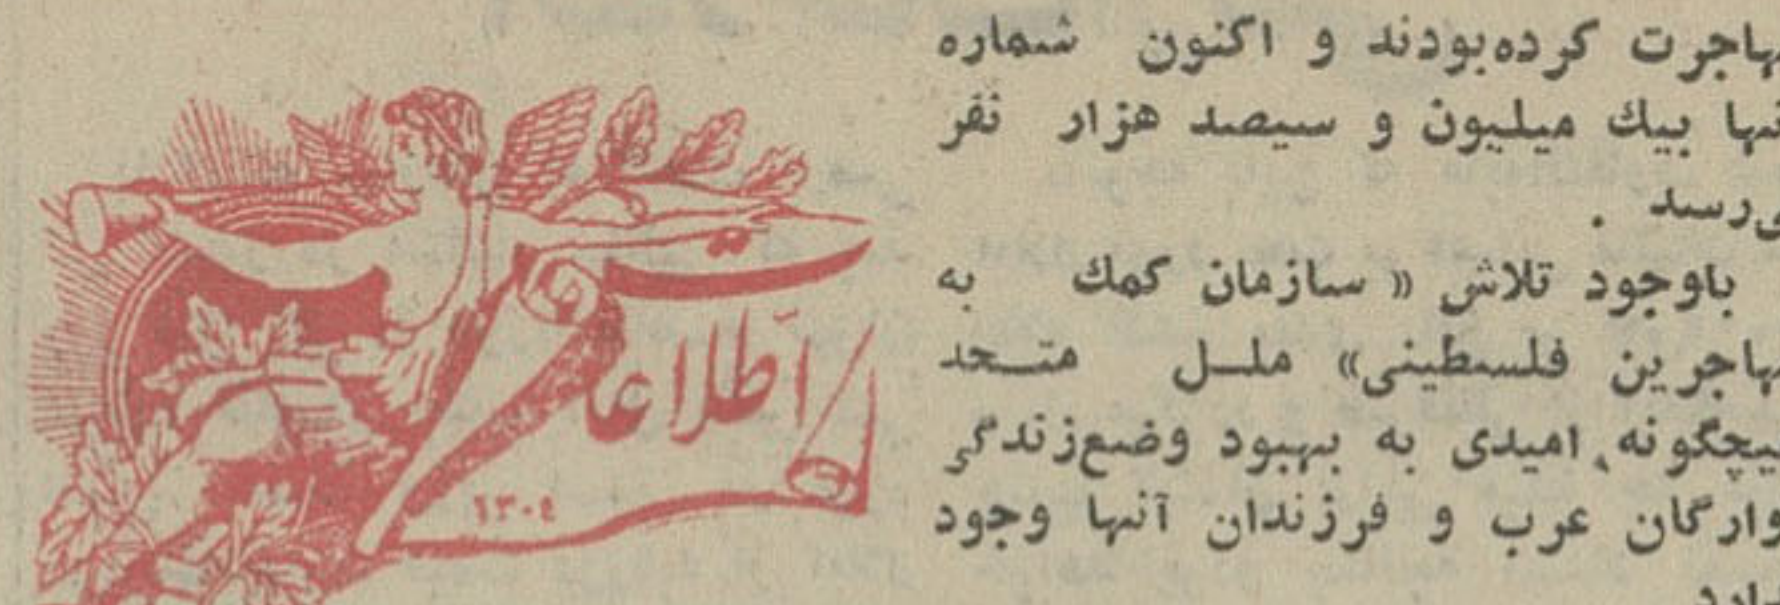 هاجرت کرده‌بودند و اکنون شماره
نها بیك میلیون و سیصد هزار نفر
ی‌رسد .
باوجود تلاش « سازمان كمك به
هاجرین فلسطینی» ملل متحد
یچگونه امیدی به بهبود وضع‌زندگی
وارگان عرب و فرزندان آنها وجود
اطلاعات
۱۳۰٤